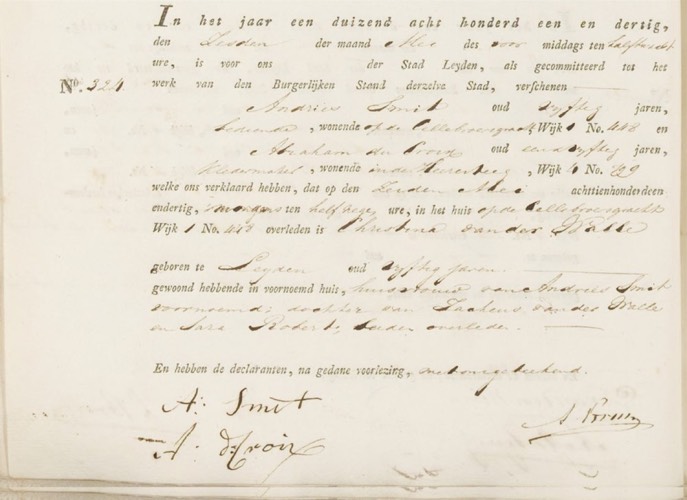 In het jaar een duizend acht honderd een en dertig,
den Zesden der maand Mei des voor middags ten half
ure, is voor ons der Stad Leyden, als gecommitteerd tot het
N°. 324. werk van den Burgerlijken Stand derzelve Stad, verschenen
Andries Smit oud vyftig jaren,
bediende, wonende op de Cellebroersgracht, Wijk 1 No. 448 en
Abraham du Croix oud een en vyftig jaren,
kledermaker, wonende in de Heerensteeg, Wijk 4 No.
welke ons verklaard hebben, dat op den Zesden Mei achttienhonderdeen
endertig, morgens ten half zeven ure, in het huis op de Cellebroersgracht
Wijk 1 No. 448 overleden is Christina van der Walle
geboren te Leyden oud vyftig jaren.
gewoond hebbende in voornoemd huis, huisvrouw van Andries Smit
voornoemd; dochter van Zacheus van der Walle
en Sara Robert, beiden overleden.
En hebben de declaranten, na gedane voorlezing, met ons geteekend.
A: Smit
A. d Croix